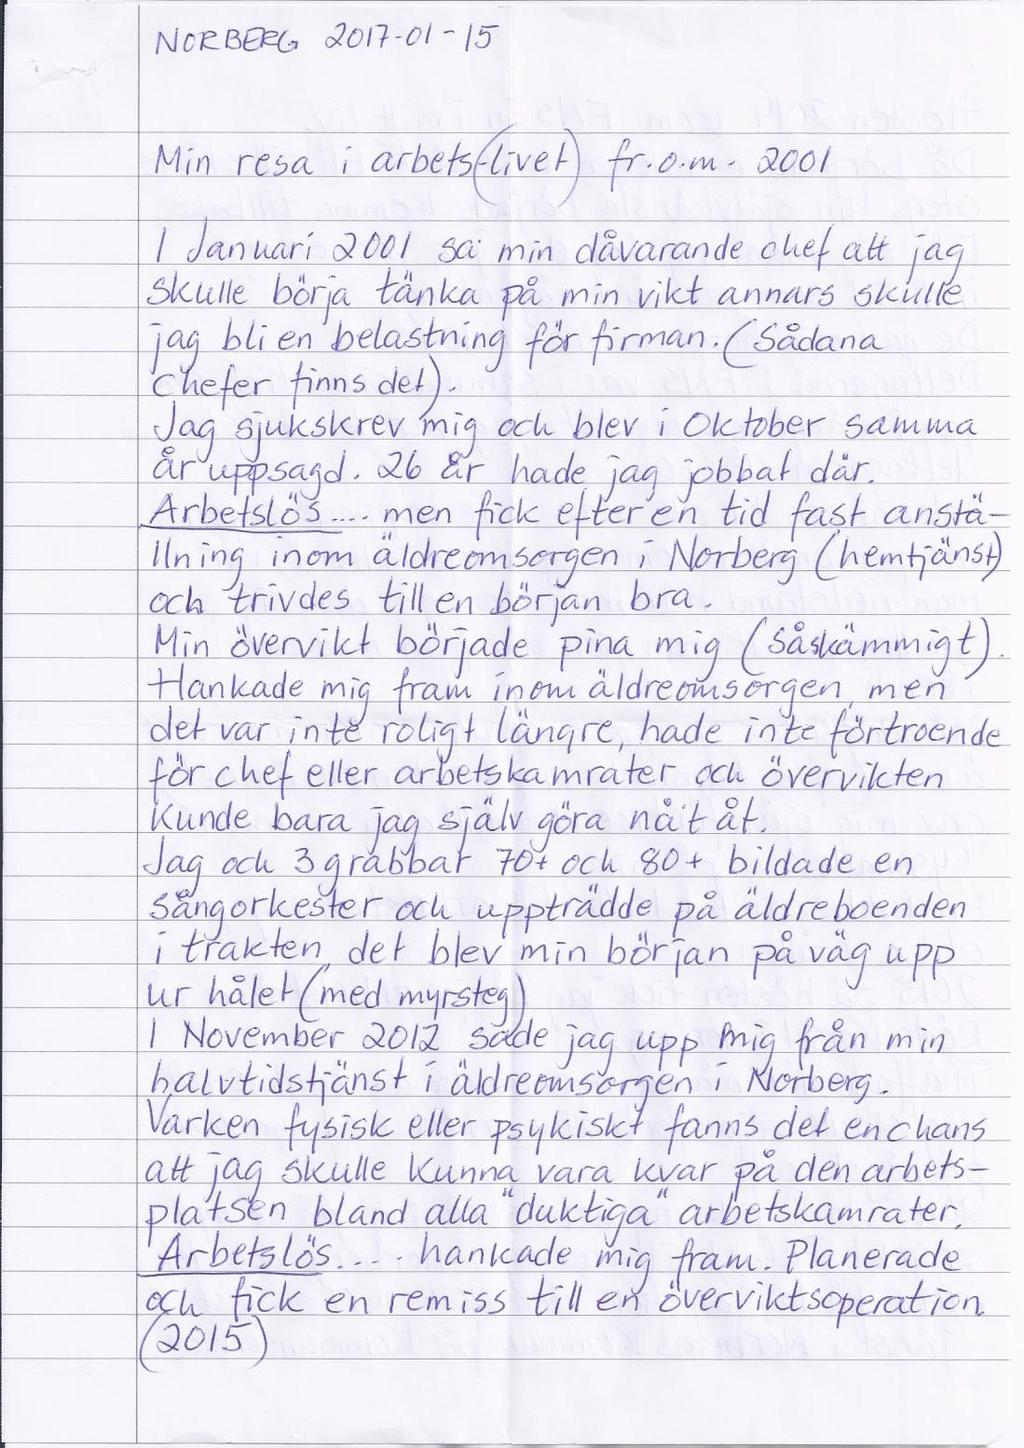 NORBERG 2017-01-15
Min resa i arbets-(livet) fr.o.m. 2001
I Januari 2001 sa min dåvarande chef att jag
skulle börja tänka på min vikt annars skulle
jag bli en belastning för firman. (Sådana
chefer finns det).
Jag sjukskrev mig och blev i Oktober samma
år uppsagd. 26 år hade jag jobbat där.
Arbetslös.... men fick efter en tid fast anstä-
llning inom äldreomsorgen i Norberg (hemtjänst)
och trivdes till en början bra.
Min övervikt började pina mig (såskämmigt).
Hankade mig fram inom äldreomsorgen, men
det var inte roligt längre, hade inte förtroende
för chef eller arbetskamrater och övervikten
kunde bara jag själv göra nåt åt.
Jag och 3 grabbar 70+ och 80+ bildade en
sångorkester och uppträdde på äldreboenden
i trakten, det blev min början på väg upp
ur hålet (med myrsteg)
I November 2012 sade jag upp mig från min
halvtidstjänst i äldreomsorgen i Norberg.
Varken fysisk eller psykiskt fanns det en chans
att jag skulle kunna vara kvar på den arbets-
platsen bland alla "duktiga" arbetskamrater.
Arbetslös.... hankade mig fram. Planerade
och fick en remiss till en överviktsoperation.
(2015)